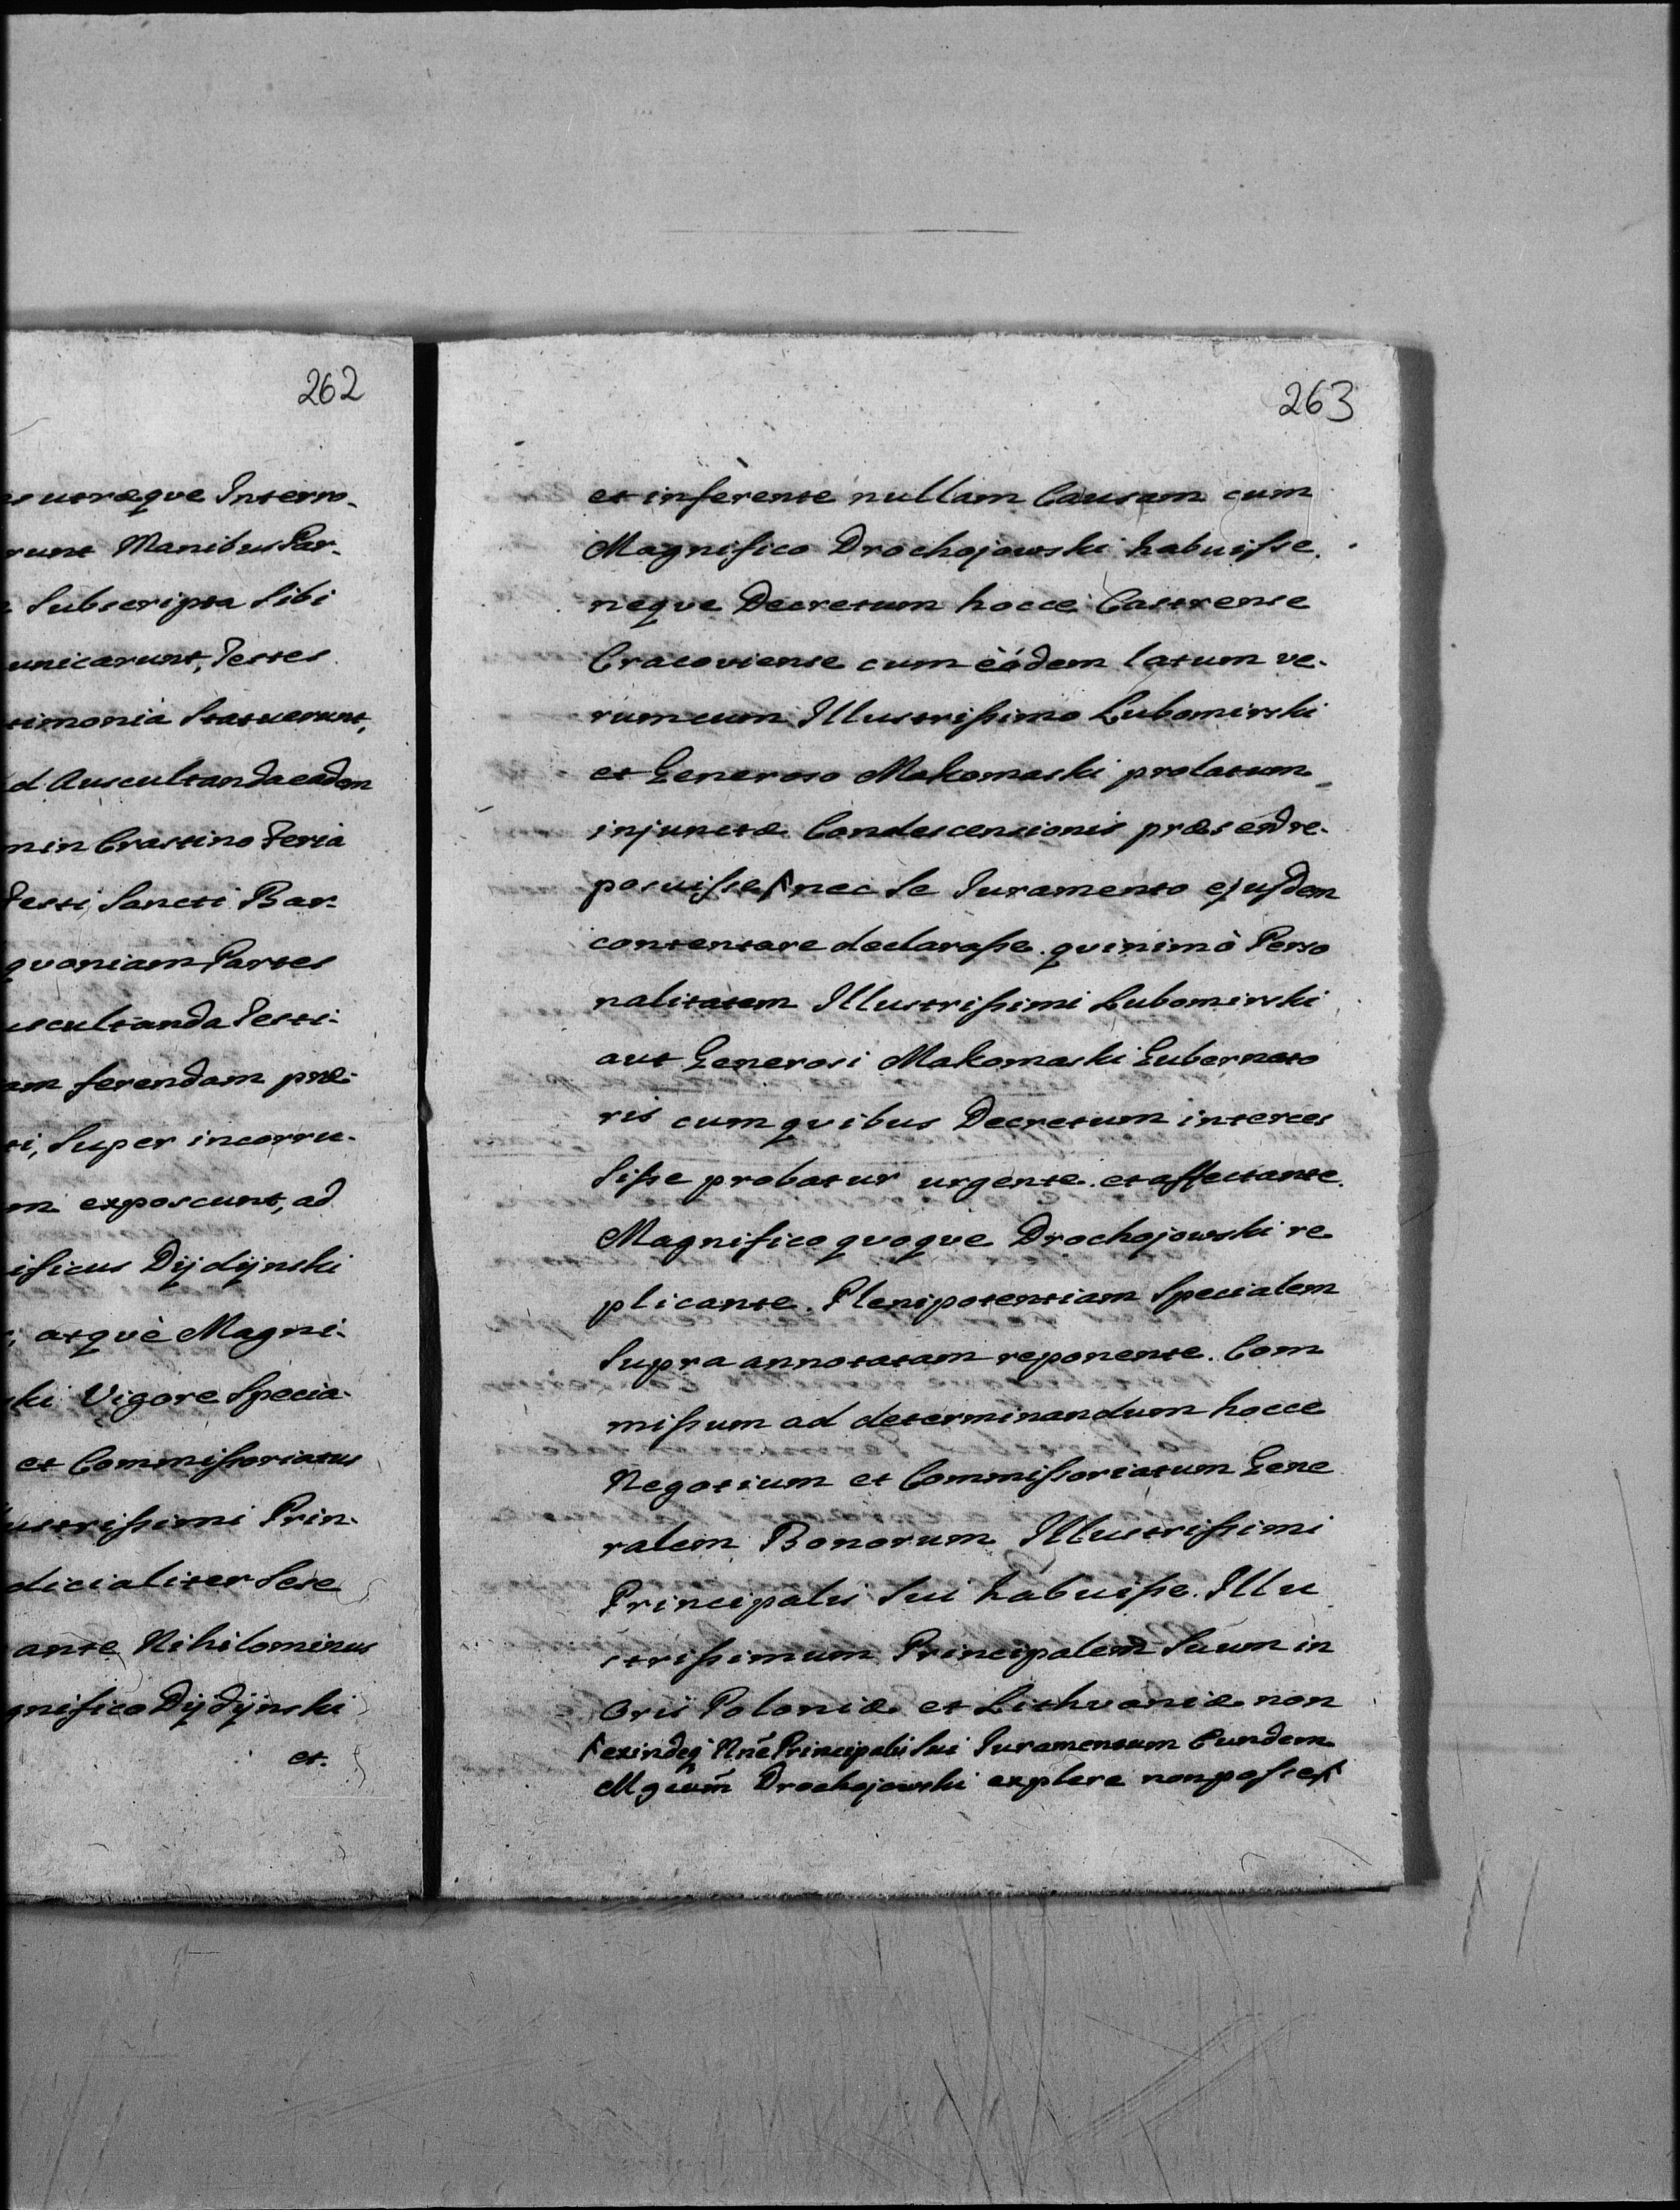 262
es utræque Interro-
runt Manibus Par-
Subscripta Sibi
unicarunt, Testes
timonia Statuerunt,
d Auscultanda eadem
nin Crastino Feria
Festi Sancti Bar-
quoniam Partes
uscultanda Testi-
am ferendam præ-
ti, Super incorru-
m exposcunt, ad
ificus Dÿdÿnski
, atquè Magni-
ski Vigore Specia-
et Commissoriatus
ustrissimi Prin-
dicialiter Sese
ante Nihilominus
gnifico Dÿdÿnski
et.
263
et inferente nullam Causam cum
Magnifico Drochojowski habuisse.
neque Decretum hocce Castrense
Cracoviense cum èódem latum ve-
rum cum Illustrissimo Lubomirski
et Generoso Makomaski prolatum
injunctæ Condescensionis præsendre-
posuisse nec Se Juramento ejusdem
contentare declarasse. quinimò Perso
nalitatem Illustrissimi Lubomirski
aut Generosi Makomaski Gubernato
ris cum quibus Decretum interces
Sisse probatur urgente. et affectante.
Magnifico quoque Drochojowski re
plicante. Plenipotentiam Specialem
Supra annotatam reponente. Com
missum ad determinandum hocce
Negotium et Commissoriatum Gene
ralem Bonorum Illustrissimi
Principalis Sui habuisse. Illu
strissimum Principalem Suum in
Oris Poloniæ et Lithvaniæ non
exindeq Nnē Principalis Sui Juramentum Eundem
Mgcum̄ Drochojowski explere non posse